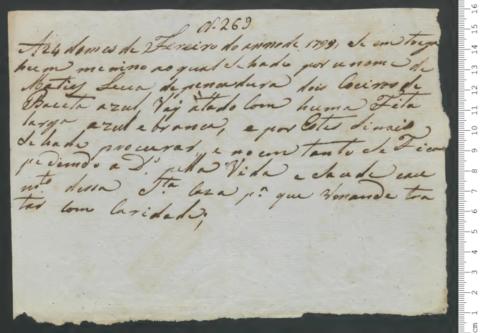 N. 269
A 24 do mes de Fevreiro do anno de 1789, Se em trega
hum menino ao qual se hade por o nome de
Matias Leva, de penadura dois Coeiros de
Baeta azul, Vaj atado com huma Fita
larga azul e branca, e por Estes Sinais
Se hade procurar, e no em tanto Se Fica
pedindo a D.s pella Vida e Saude e au
mto dessa Sta Caza pa que Vmande tra
tar com Caridade;
cm 1 2 3 4 5 6 7 8 9 10 11 12 13 14 15 16